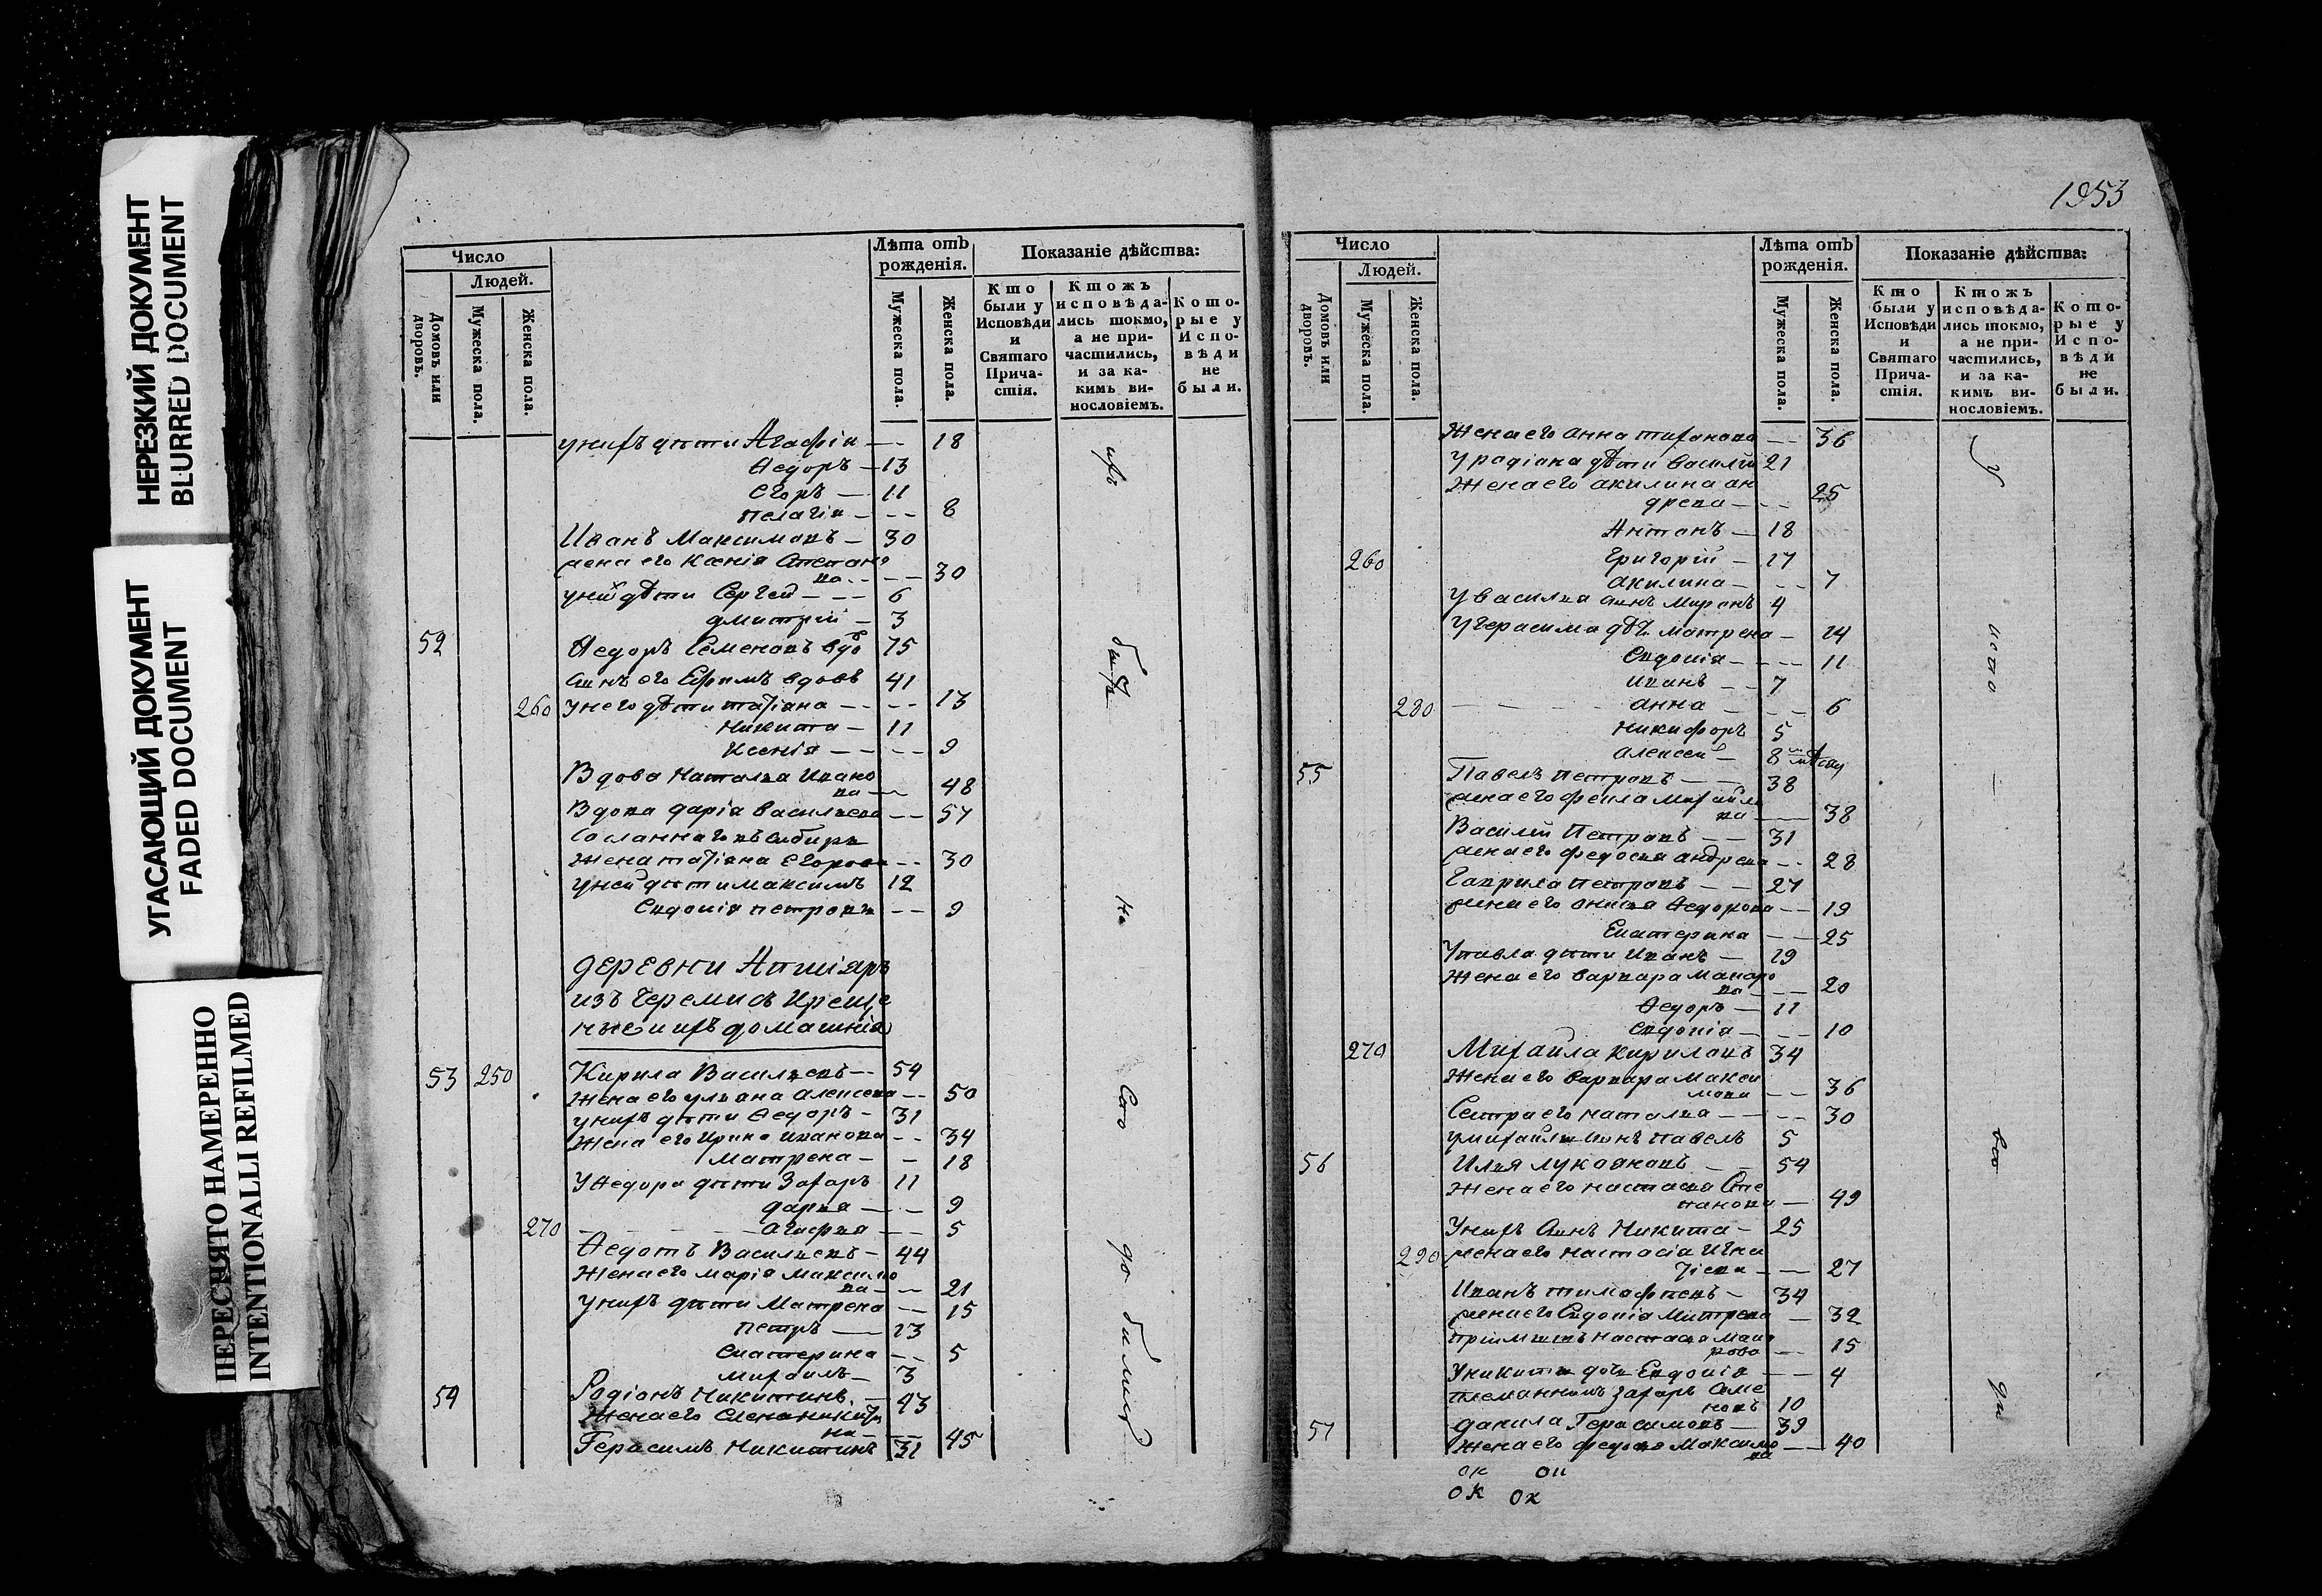 НЕРЕЗКИЙ ДОКУМЕНТ
BLURRED DOCUMENT
УГАСАЮЩИЙ ДОКУМЕНТ
FADED DOCUMENT
ПЕРЕСНЯТО НАМЕРЕННО
INTENTIONALLI REFILMED
Число
Людей.
Домовъ или дворовъ.
Мужеска пола.
Женска пола.
Лѣта отъ
рожденія.
Мужеска пола.
Женска пола.
Показаніе дѣйства:
Кто
были у
Исповѣди
и
Святаго
Прича-
стія.
Ктожъ
исповѣда-
лись токмо,
а не при-
частились,
и за ка-
кимъ ви-
нословіемъ.
Кото-
рые у
Испо-
вѣди
не
были.
унихъ дѣти Агафія — 18
Ѳедоръ — 13
Егоръ — 11
Пелагія — 8
Иванъ Максимовъ — 30
жена его Ксенія Степано
ва — 30
унихъ дѣти Сергей — 6
Дмитрій — 3
52 Ѳедоръ Семеновъ вдо 75
Сынъ его Ефимъ вдовъ 41
260 унего дѣти татіана — 13
Никита — 11
Ксенія — 9
Вдова Наталья Ивано
ва — 48
Вдова дарія васильева — 57
Сосланнаго въ Сибирь
жена татіана Егорова — 30
уней дѣти максимъ 12
Евдокія петрова — 9
деревни
изъ Черемисъ Креще
ные и ихъ домашнія
53 250 Кирила Васильевъ — 54
Жена его ульяна алексеева — 50
унихъ дѣти Ѳедоръ — 31
Жена его Ирина иванова — 34
Матрена — 18
У Ѳедора дѣти Захаръ 11
дарья — 9
270 агафья — 5
Ѳедотъ Васильевъ — 44
Жена его марія максимо
ва — 21
унихъ дѣти Матрена — 15
петръ — 13
Екатерина — 5
михаилъ — 3
54 Родіонъ Никитинъ — 43
Жена его Елена никити
на — 45
Герасимъ Никитинъ 31
1953
Число
Людей.
Домовъ или дворовъ.
Мужеска пола.
Женска пола.
Лѣта отъ
рожденія.
Мужеска пола.
Женска пола.
Показаніе дѣйства:
Кто
были у
Исповѣди
и
Святаго
Прича-
стія.
Ктожъ
исповѣда-
лись токмо,
а не при-
частились,
и за ка-
кимъ ви-
нословіемъ.
Кото-
рые у
Испо-
вѣди
не
были.
Жена его анна — 36
У радіона дѣти василій 21
Жена его акилина ан
дреева — 25
Антонъ — 18
260 Григорій — 17
акилина — 7
У василья сынъ Миронъ 4
У герасима дѣти матрена — 14
Евдокія — 11
иванъ — 7
280 анна — 6
никифоръ 5
алексей — 8
55 Павелъ петровъ — 38
жена его михайло
ва — 38
Василій Петровъ — 31
жена его федосья андреева — 28
Гаврила петровъ — 27
жена его Ѳедорова — 19
Екатерина — 25
У павла дѣти иванъ — 19
Жена его варвара макаро
ва — 20
Ѳедоръ — 11
Евдокія — 10
270 Михайла кириловъ 34
Жена его варвара макси
мова — 36
Сестра его наталья — 30
у михайлы сынъ павелъ 5
56 Илья лукояновъ — 54
Жена его настасья Сте
панова — 49
Унихъ Сынъ Никита — 25
290 жена его настасія Игна
тіева — 27
Иванъ тимофеевъ — 34
жена его Евдокія Митрева — 32
настасья мака
рова — 15
У никиты дочь Евдокія — 4
племянникъ захаръ Семе
новъ 10
57 данила Герасимовъ — 39
жена его федосья Максимо
ва — 40